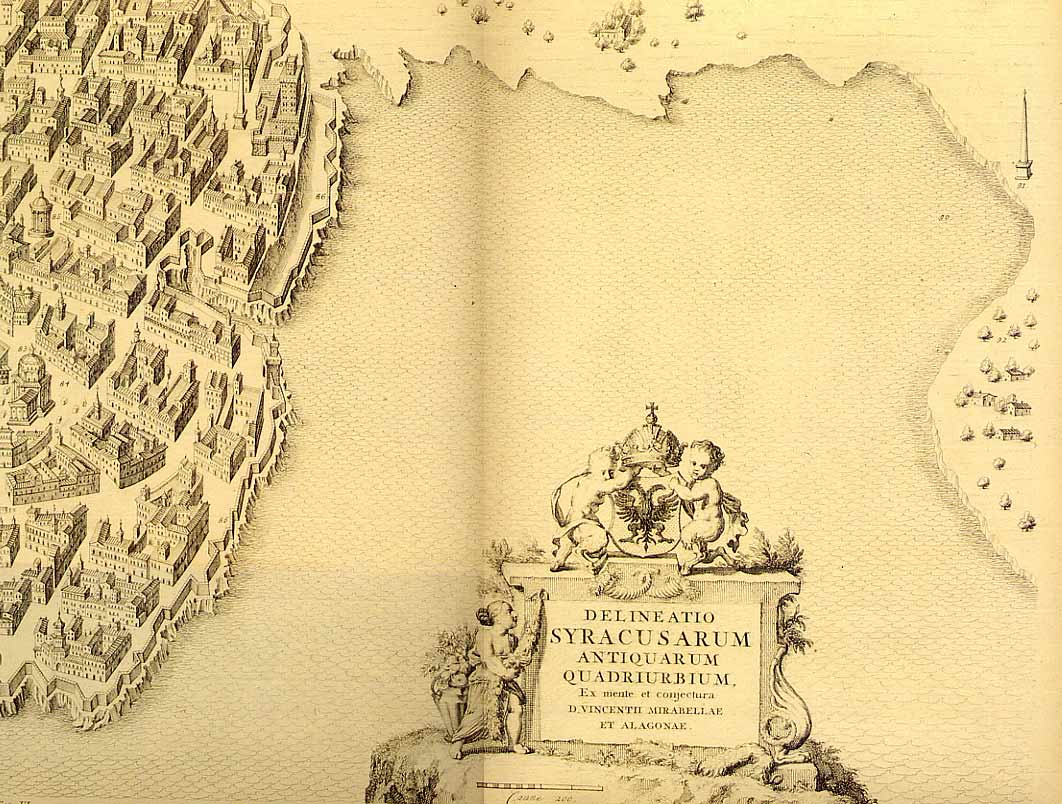 86
91
89
92
84
DELINEATIO
SYRACUSARUM
ANTIQUARUM
QUADRIURBIUM,
Ex mente et conjectura
D. VINCENTII MIRABELLAE
ET ALAGONAE.
Canne 200